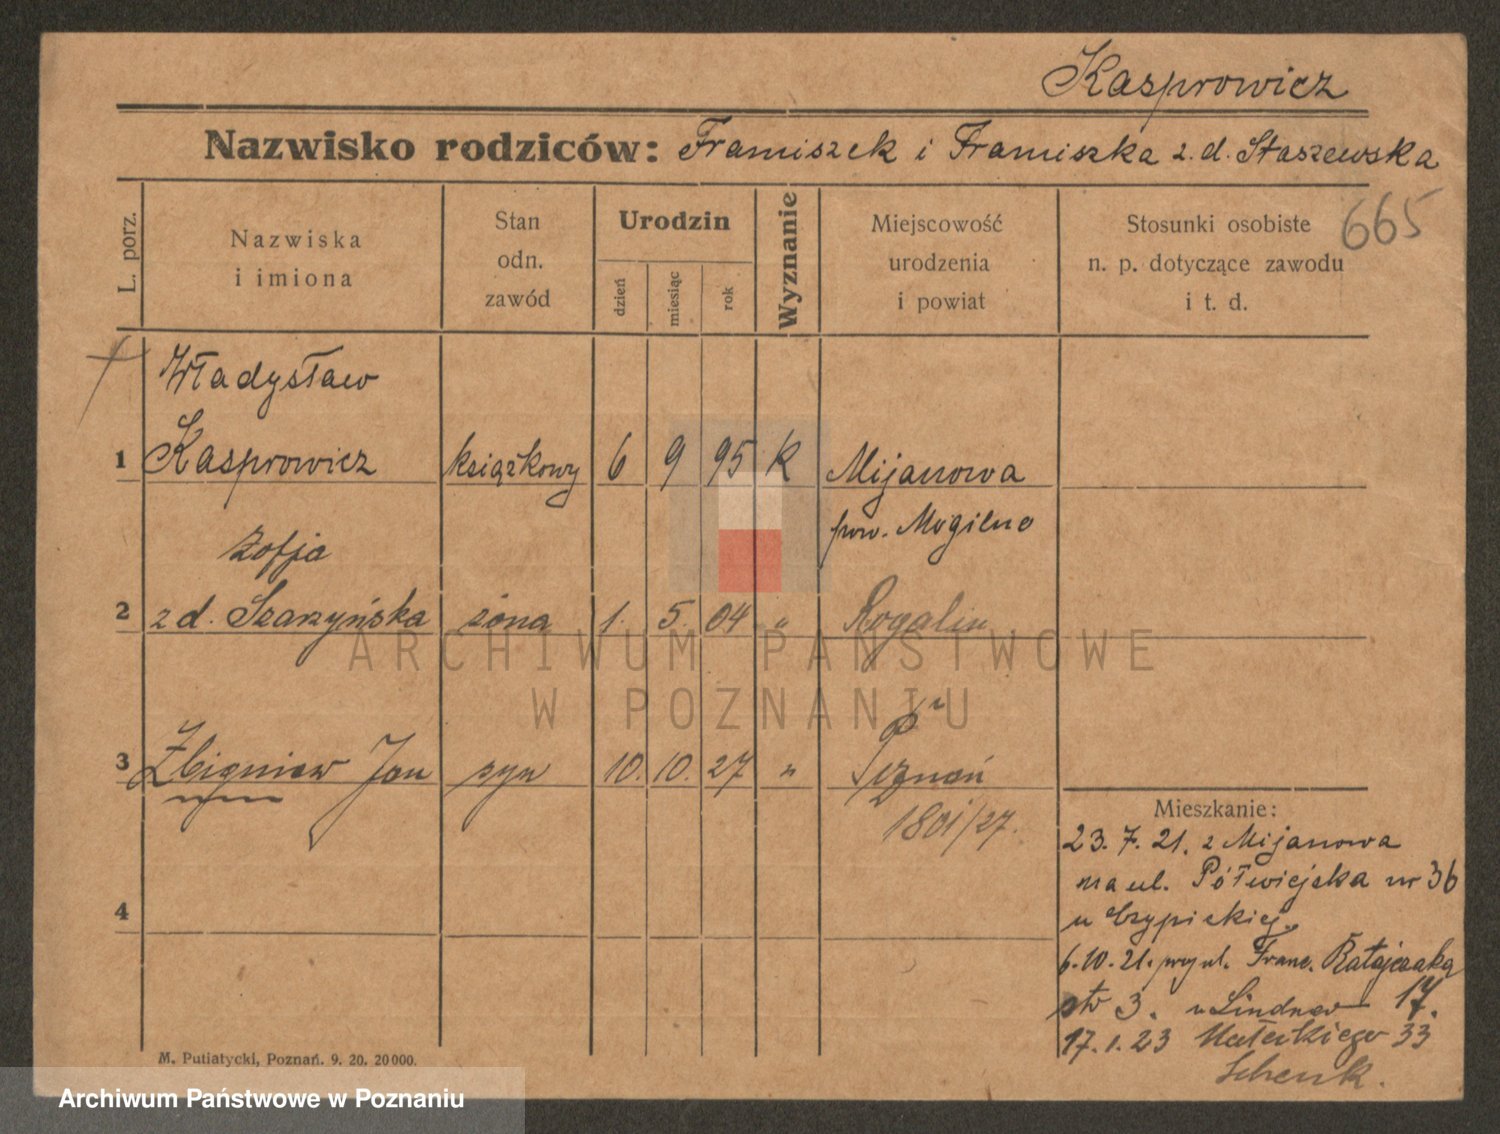 Kasprowicz
Nazwisko rodziców: Franciszek i Franciszka z. d. Staszewska
665
L. porz.
Nazwiska
i imiona
Stan
odn.
zawód
Urodzin
dzień
miesiąc
rok
Wyznanie
Miejscowość
urodzenia
i powiat
Stosunki osobiste
n. p. dotyczące zawodu
i t. d.
Władysław
1 Kasprowicz książkowy 6 9 95 K Mijanowa
pow. Mogilno
Zofja
2 z d. Szarzyńska żona 1. 5. 04 " Rogalin
3 Zbigniew Jan syn 10. 10. 27 " Poznań
1801/27.
4
Mieszkanie:
23. 7. 21. z Mijanowa
na ul. Półwiejska nr 36
u
6.10.21. przy ul. Franc. Ratajczaka
3. u Lindner 17.
17.1.23 Matejkiego 33
Schenk.
M. Putiatycki, Poznań. 9. 20. 20000.
ARCHIWUM PAŃSTWOWE
W POZNANIU
Archiwum Państwowe w Poznaniu